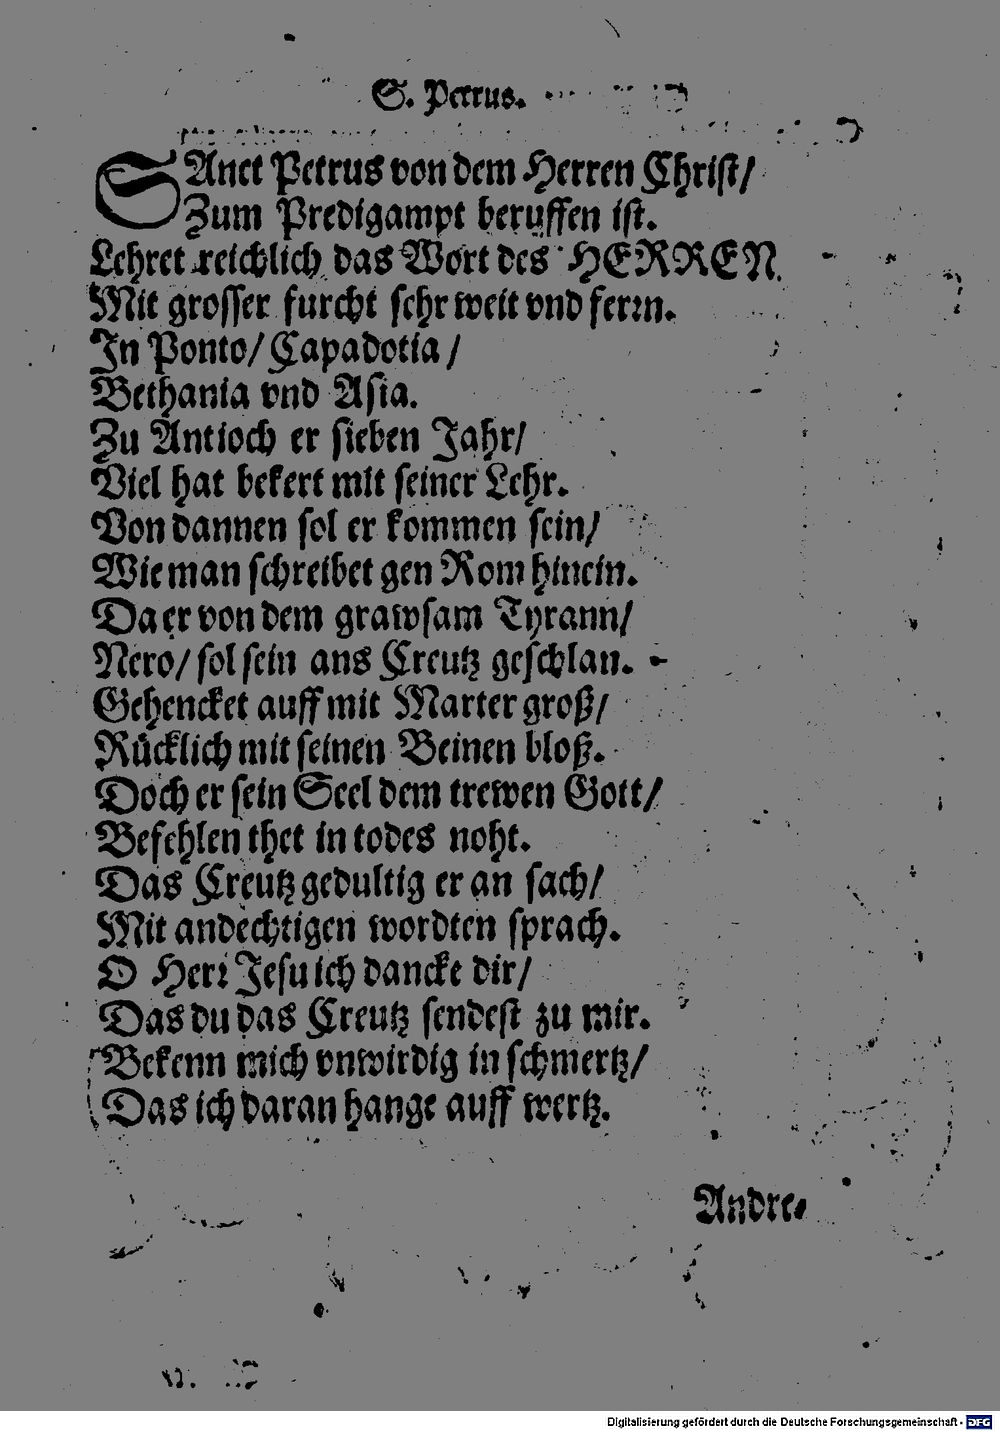 S. Petrus.
SAnct Petrus von dem Herren Christ/
Zum Predigampt beruffen ist.
Lehret reichlich das Wort des HERREN.
Mit grosser furcht sehr weit vnd ferrn.
In Ponto/ Capadotia/
Bethania vnd Asia.
Zu Antioch er sieben Jahr/
Viel hat bekert mit seiner Lehr.
Von dannen sol er kommen sein/
Wie man schreibet gen Rom hinein.
Da er von dem grawsam Tyrann/
Nero/ sol sein ans Creutz geschlan.
Gehencket auff mit Marter groß/
Rücklich mit seinen Beinen bloß.
Doch er sein Seel dem trewen Gott/
Befehlen thet in todes noht.
Das Creutz gedultig er an sach/
Mit andechtigen wordten sprach.
O Herr Jesu ich dancke dir/
Das du das Creutz sendest zu mir.
Bekenn mich vnwirdig in schmertz/
Das ich daran hange auff wertz.
Andre-
Digitalisierung gefördert durch die Deutsche Forschungsgemeinschaft - DFG